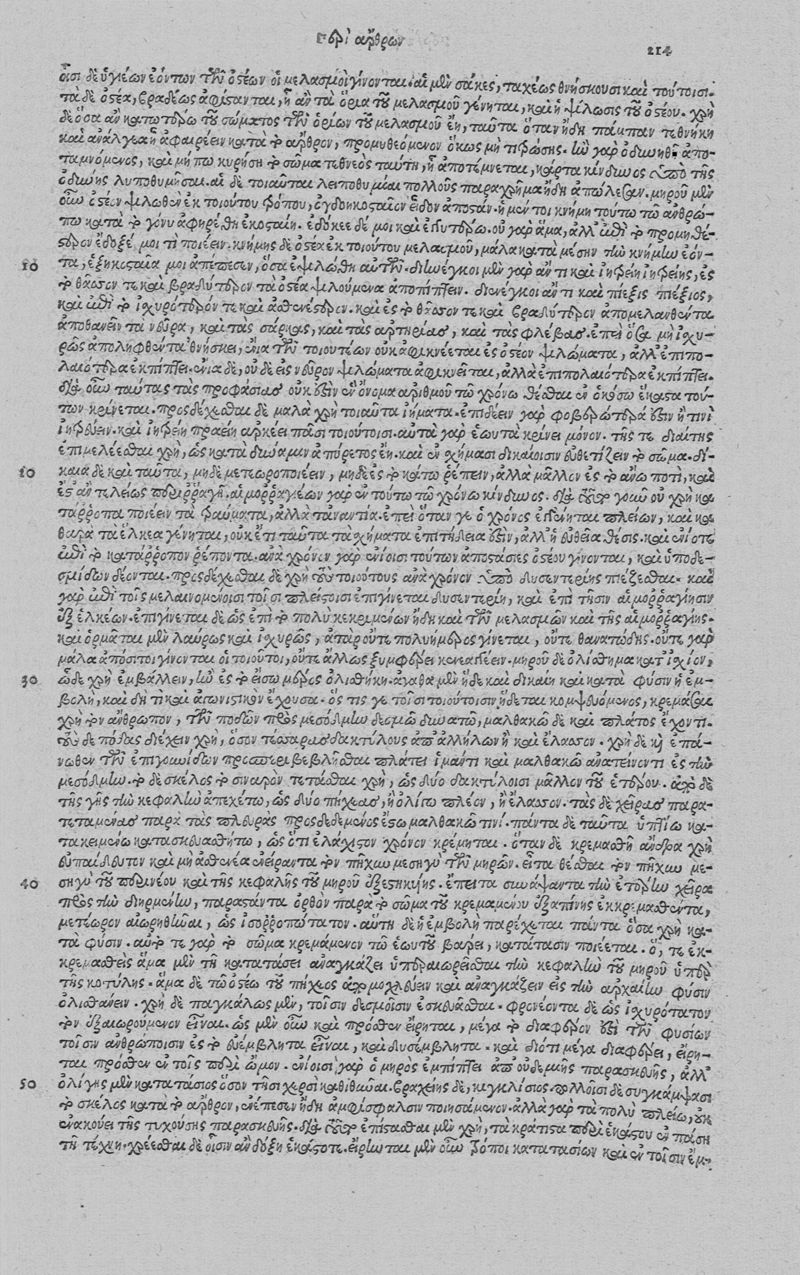 Περὶ ἄρθρων
214
οἷσι δὲ ὑγιέων ἐόντων τῶν ὀστέων οἱ μελασμοὶ γίνονται. αἱ μὲν σάρκες, ταχέως θνήσκουσι καὶ τούτοισι.
τὰ δὲ ὀστέα, βραδέως ἀφίσταται, ᾗ ἂν τὰ ὅρια τοῦ μελασμοῦ γένηται, καὶ ἡ ψίλωσις τοῦ ὀστέου. χρὴ
δὲ ὅσα ἂν κατωτέρω τοῦ σώματος τῶν ὁρίων τοῦ μελασμοῦ ἔῃ, ταῦτα ὅταν ἤδη πάμπαν τεθνήκῃ
καὶ ἀναλγέα ᾖ ἀφαιρέειν κατὰ τὸ ἄρθρον, προμηθεόμενον ὅκως μὴ τιτρώσῃς. ἢν γὰρ ὀδυνηθῇ ἀπο-
ταμνόμενος, καὶ μήπω κυρήσῃ τὸ σῶμα τεθνεὸς ταύτῃ, ᾗ ἀποτέμνεται, κάρτα κίνδυνος ὑπὸ τῆς
ὀδύνης λιποθυμῆσαι. αἱ δὲ τοιαῦται λειποθυμίαι πολλοὺς παραχρῆμα ἤδη ἀπώλεσαν. μηροῦ μὲν
οὖν ὀστέον ψιλωθὲν ἐκ τοιούτου τρόπου, ὀγδοηκοσταῖον εἶδον ἀποστάν. ἡ μέντοι κνήμη τούτῳ τῷ ἀνθρώ-
πῳ κατὰ τὸ γόνυ ἀφῃρέθη εἰκοσταίη. ἐδόκεε δέ μοι καὶ ἐγγυτέρω. οὐ γὰρ ἅμα, ἀλλ' ἐπὶ τὸ προμηθέ-
στερον ἔδοξέ μοι τὶ ποιέειν. κνήμης δὲ ὀστέα ἐκ τοιούτου μελασμοῦ, μάλα κατὰ μέσην τὴν κνήμην ἐόν-
10 τα, ἑξηκοσταῖα μοι ἀπέπεσεν, ὅσα ἐψιλώθη αὐτῶν. διενέγκοι μὲν γὰρ ἄν τι καὶ ἰητρείη ἰητρείης, ἐς
τὸ θᾶσσον τε καὶ βραδυτέρον τὰ ὀστέα ψιλούμενα ἀποπίπτειν. διενέγκοι ἄν τι καὶ πίεξις πιέξιος,
καὶ ἐπὶ τὸ ἰσχυρότερόν τε καὶ ἀσθενέστερον. καὶ ἐς τὸ θᾶσσον τε καὶ βραδυτέρον ἀπομελανθέντα
ἀποθανεῖν τὰ νεῦρα, καὶ τὰς σάρκας, καὶ τὰς ἀρτηρίας, καὶ τὰς φλέβας. ἐπεὶ ὅσα μὴ ἰσχυ-
ρῶς ἀποληφθέντα θνήσκει, ἔνια τῶν τοιουτέων οὐκ ἀφικνέεται ἐς ὀστέον ψιλώματα, ἀλλ' ἐπιπο-
λαιότερα ἐκπίπτει. ἔνια δὲ, οὐδὲ εἰς νεῦρον ψιλώματα ἀφικνεῖται, ἀλλὰ ἐπιπολαιότερα ἐκπίπτει.
διὰ οὖν ταύτας τὰς προφάσιας οὐκ ἔστιν ἓν ὄνομα ἀριθμοῦ τῷ χρόνῳ θέσθαι ἐν ὁκόσῳ ἕκαστα τού-
των κρίνεται. προσδέχεσθαι δὲ μάλα χρὴ τοιαῦτα ἰήματα. ἐπιδέειν γὰρ φοβερώτερά ἐστιν ἤ τινὶ
ἰητρεύειν. καὶ ἰητρείη πραείη ἀρκέει πᾶσι τοιούτοισι. αὐτὰ γὰρ ἑωυτὰ κρίνει μόνον. τῆς τε διαίτης
ἐπιμελέεσθαι χρὴ, ὡς κατὰ δύναμιν ἀπύρετος ἔῃ. καὶ ἐν σχήμασι δικαίοισιν εὐθετίζειν τὸ σῶμα. δί-
10 καια δὲ καὶ ταῦτα, μηδὲ μετεωροποιέειν, μηδὲ ἐς τὸ κάτω ῥέπειν, ἀλλὰ μᾶλλον ἐς τὸ ἄνω ποτὶ, καὶ
ἔς τ' ἂν τελείως περιῤῥαγῇ. αἱμοῤῥαγέων γὰρ ἐν τούτῳ τῷ χρόνῳ κίνδυνος. διὰ τοῦτο γοῦν οὐ χρὴ κα
τάῤῥοπα ποιέειν τὰ τρώματα, ἀλλὰ τἀναντία. ἐπεὶ ὅταν γε ὁ χρόνος ἐγγένηται πλείων, καὶ κα
θαρὰ τὰ ἕλκεα γένηται, οὐκ ἔτι ταῦτα τὰ σχήματα ἐπιτήδειά ἐστιν, ἀλλ' ἡ εὐθεῖα θέσις. καὶ ἐνίοτε
ἐπὶ τὸ κατάῤῥοπον ῥέποντα. ἀνὰ χρόνον γὰρ ἐνίοισι τούτων ἀποστάσιες ὀστέου γίνονται, καὶ ὑποδε-
σμίδων δέονται. προσδέχεσθαι δὲ χρὴ τοὺς τοιούτους ἀνὰ χρόνον ὑπὸ δυσεντερίης πιέζεσθαι. καὶ
γὰρ ἐπὶ τοῖς μελαινομένοισι τοῖσι πλείστοισι ἐπιγίνεται δυσεντερίη, καὶ ἐπὶ τῇσιν αἱμοῤῥαγίησιν
ἐξ ἑλκέων. ἐπιγίνεται δὲ ὡς ἐπὶ τὸ πολὺ κεκριμένων ἤδη καὶ τῶν μελασμῶν καὶ τῆς αἱμοῤῥαγίης.
καὶ ὁρμᾶται μὲν λαύρως καὶ ἰσχυρῶς, ἀτὰρ οὔτε πολυήμερος γίνεται, οὔτε θανατώδης. οὔτε γὰρ
μάλα ἀπόσιτοι γίνονται οἱ τοιοῦτοι, οὔτε ἄλλως ξυμφέρει κενεαγγέειν. μηροῦ δὲ ὀλίσθημα κατ' ἰσχίον,
30 ὧδε χρὴ ἐμβάλλειν, ἢν ἐς τὸ εἴσω μέρος ὠλισθήκῃ. ἀγαθὴ μὲν ἥδε καὶ δικαίη καὶ κατὰ φύσιν ἡ ἐμ-
βολὴ, καὶ δή τι καὶ ἀγωνιστικὸν ἔχουσα. ὅς τις γε τοῖσι τοιούτοισιν ἥδεται κομψευόμενος, κρεμάσαι
χρὴ τὸν ἄνθρωπον, τῶν ποδῶν πρὸς μεσόδμην δεσμῷ δυνατῷ, μαλθακῷ δὲ καὶ πλάτος ἔχοντι.
τοὺς δὲ πόδας διέχειν χρὴ, ὅσον τέσσαρας δακτύλους ἀπ' ἀλλήλων ἢ καὶ ἔλασσον. χρὴ δὲ καὶ ἐπά-
νωθεν τῶν ἐπιγουνίδων προσπεριβεβλῆσθαι πλατεῖ ἱμάντι καὶ μαλθακῷ ἀνατείνοντι ἐς τὴν
μεσόδμην. τὸ δὲ σκέλος τὸ σιναρὸν τετάσθαι χρὴ, ὡς δύο δακτύλοισι μᾶλλον τοῦ ἑτέρου. ἀπὸ δὲ
τῆς γῆς τὴν κεφαλὴν ἀπεχέτω, ὡς δύο πήχεας, ἢ ὀλίγῳ πλέον, ἢ ἔλασσον. τὰς δὲ χεῖρας παρα-
τεταμένας παρὰ τὰς πλευρὰς προσδεδεμένος ἔστω μαλθακῷ τινί. πάντα δὲ ταῦτα ὑπτίῳ κα-
τακειμένῳ κατασκευασθήτω, ὡς ὅτι ἐλάχιστον χρόνον κρέμηται. ὅταν δὲ κρεμασθῇ ἄνδρα χρὴ
εὐπαίδευτον καὶ μὴ ἀσθενέα ἐνείραντα τὸν πῆχυν μεσηγὺ τῶν μηρῶν. εἶτα θέσθαι τὸν πῆχυν με-
40 σηγὺ τοῦ περινέου καὶ τῆς κεφαλῆς τοῦ μηροῦ ἐξεστηκυίης. ἔπειτα συνάψαντα τὴν ἑτέρην χεῖρα
πρὸς τὴν διηρμένην, παραστάντα ὀρθὸν παρὰ τὸ σῶμα τοῦ κρεμαμένου ἐξαπίνης ἐκκρεμασθέντα,
μετέωρον αἰωρηθῆναι, ὡς ἰσοῤῥοπώτατον. αὕτη δὲ ἡ ἐμβολὴ παρέχεται πάντα ὅσα χρὴ κα-
τὰ φύσιν. αὐτό τε γὰρ τὸ σῶμα κρεμάμενον τῷ ἑωυτοῦ βάρει, κατάτασιν ποιέεται. ὅ, τε ἐκ-
κρεμασθεὶς ἅμα μὲν τῇ κατατάσει ἀναγκάζει ὑπεραιωρεῖσθαι τὴν κεφαλὴν τοῦ μηροῦ ὑπὲρ
τῆς κοτύλης. ἅμα δὲ τῷ ὀστέῳ τοῦ πήχεος ἀπομοχλεύειν καὶ ἀναγκάζειν εἰς τὴν ἀρχαίην φύσιν
ὀλισθάνειν. χρὴ δὲ παγκάλως μὲν, τοῖσιν δεσμοῖσιν ἐσκευάσθαι. φρονέοντα δὲ ὡς ἰσχυρότατον
τὸν ἐξαιωρούμενον εἶναι. ὡς μὲν οὖν καὶ πρόσθεν εἴρηται, μέγα τὸ διαφέρον ἐστὶ τῶν φυσίων
τοῖσιν ἀνθρώποισιν ἐς τὸ εὐέμβλητα εἶναι, καὶ δυσέμβλητα. καὶ διότι μέγα διαφέρει, εἴρη-
ται πρόσθεν ἐν τοῖς περὶ ὤμου. ἐνίοισι γὰρ ὁ μηρὸς ἐμπίπτει ἀπ' οὐδεμιῆς παρασκευῆς, ἀλλ'
50 ὀλίγης μὲν κατατάσιος ὅσον τῇσι χερσὶ κατιθῦναι. βραχείης δὲ, κιγκλίσιος. πολλοῖσι δὲ συγκάμψασι
τὸ σκέλος κατὰ τὸ ἄρθρον, ἐνέπεσεν ἤδη ἀμφίσφαλσιν ποιησάμενον. ἀλλὰ γὰρ τὰ πολὺ πλείω, οὐκ
ἐνακούει τῆς τυχούσης παρασκευῆς. διὰ τοῦτο ἐπίστασθαι μὲν χρὴ, τὰ κράτιστα περὶ ἑκάστου ἐν πάσῃ
τῇ τέχνῃ. χρέεσθαι δὲ οἷσιν ἂν δόξῃ ἑκάστοτε. εἴρηνται μὲν οὖν τρόποι κατατασίων καὶ ἐν τοῖσιν ἔμ-